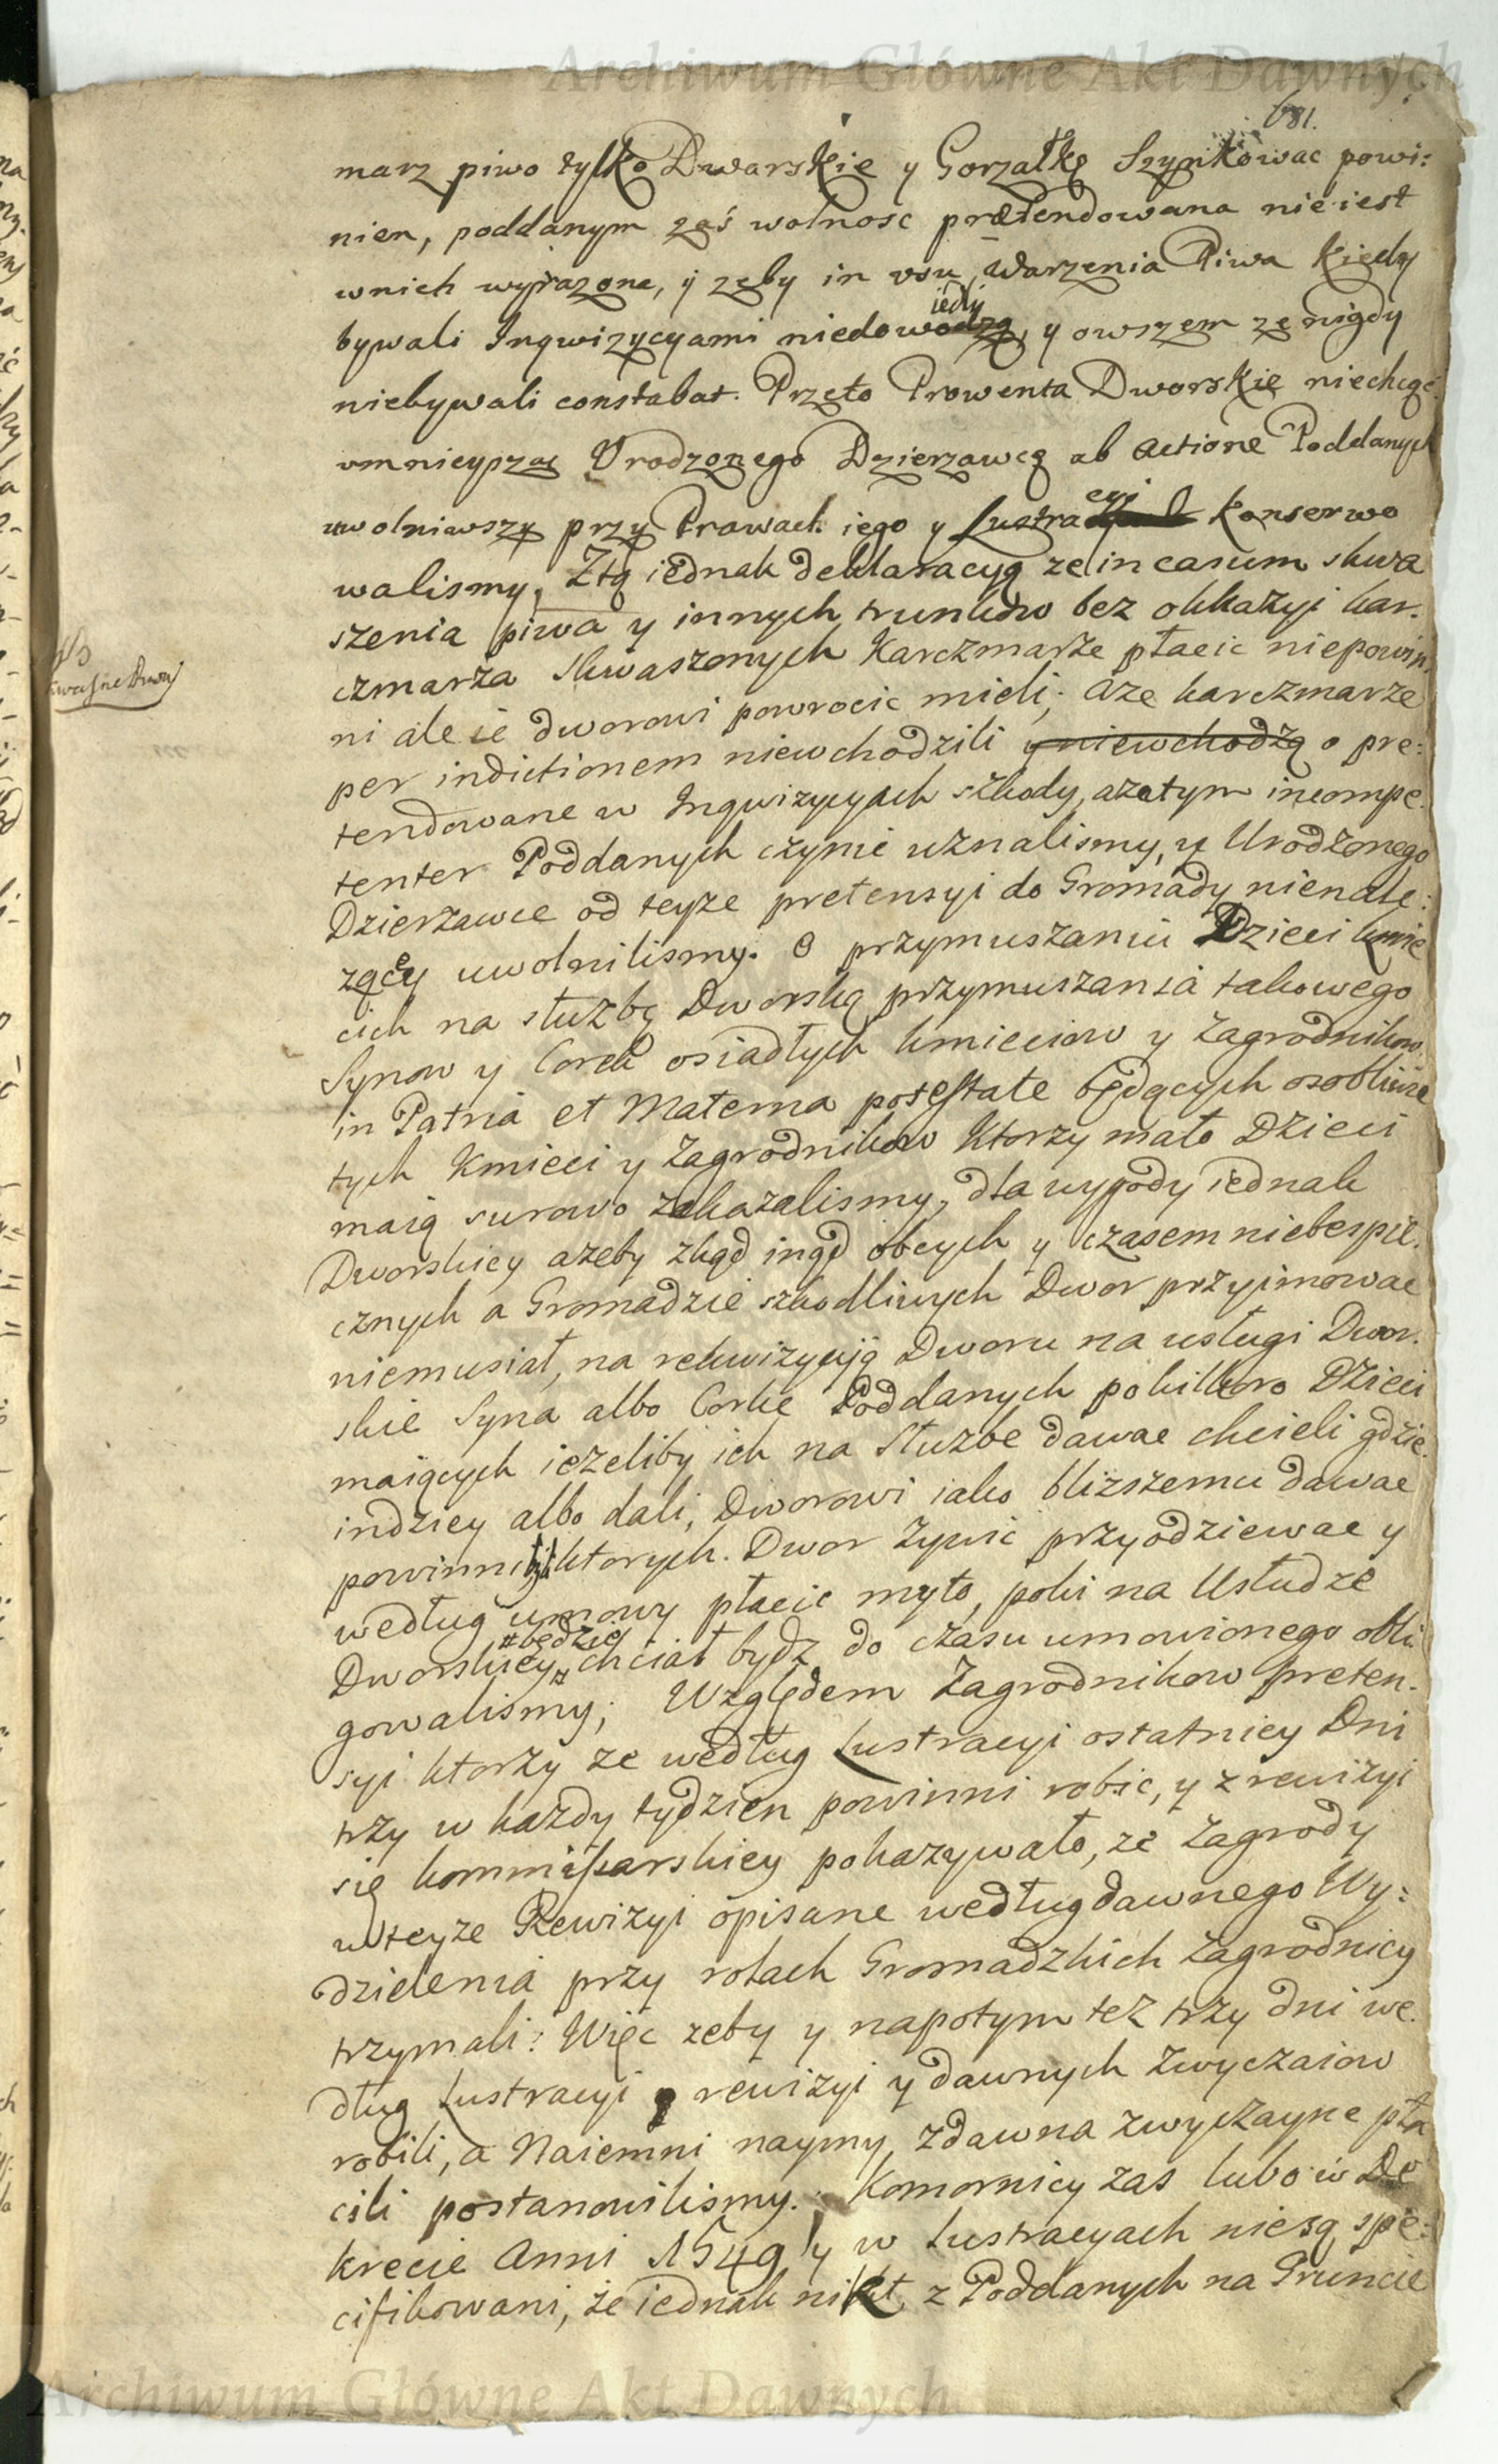 Archiwum Główne Akt Dawnych
681.
marz piwo tylko Dwarskie y Gorzałkę Szynkowac powi:
nien, poddanym zaś wolnosc prætendowana nie iest
wnich wyrazona, y zeby in usu Warzenia Piwa kiedy
bywali Inqwizycyami niedowiedli, y owszem ze nigdy
niebywali constabat. Przeto Prowenta Dworskie niechcąc
umnieyszac Urodzonego Dzierzawcę ab actione Poddanych
uwolniwszy przy Prawach iego y Lustracyi konserwo
walismy, Ztą iednak deklaracyą ze in casum skwa
szenia piwa y innych trunkow bez okkazyi kar:
czmarza skwaszonych Karczmarze płacic niepowin
ni ale ie dworowi powrocic mieli; aze karczmarze
per indictionem niewchodzili y niewchodzą o pre:
tendowane w Inqwizycyach szkody, azatym incompe:
tenter Poddanych czynic uznalismy, y Urodzonego
Dzierzawce od teyze pretensyi do Gromady nienale:
zącey uwolnilismy. O przymuszaniu Dzieci kmie
cich na służbę Dworską przymuszania takowego
Synow y Corek osiadłych kmieciow y Zagrodnikow
in Patria et Materna potestate będących osobliwie
tych Kmieci y Zagrodnikow ktorzy mało Dzieci
maią surowo zakazalismy, dla wygody iednak
Dworskiey azeby zkąd inąd obcych y czasem niebespie:
cznych a Gromadzie szkodliwych Dwor przyimowac
niemusiał, na rekwizycyją Dworu na usługi Dwor:
skie Syna albo Corkę Poddanych pokilkoro Dzieci
maiących ieżeliby ich na Służbe dawac chcieli gdzie
indziey albo dali, Dworowi iako bliższemu dawac
powinni ktorych Dwor żywic przyodziewac y
według umowy płacic myto, poki na Usłudze
Dworskiey # będzie # chciał bydz do czasu umowionego obli
gowalismy; Względem Zagrodnikow preten:
syi ktorzy ze według Lustracyi ostatniey Dni
trzy w każdy tydzien powinni robic, y z rewizyi
się kommissarskiey pokazywało, ze Zagrody
w teyze Rewizyi opisane według dawnego Wy:
dzielenia przy rolach Gromadzkich Zagrodnicy
trzymali: Więc zeby y napotym też trzy dni we:
dług Lustracyi rewizyi y dawnych zwyczaiow
robili, a Naiemni naymy zdawna zwyczayne pła
cili postanowilismy. Komornicy zas lubo w De
krecie Anni 1549 y w Lustracyach niesą spe:
cifikowani, że iednak nikt z Poddanych na Gruncie
Archiwum Główne Akt Dawnych